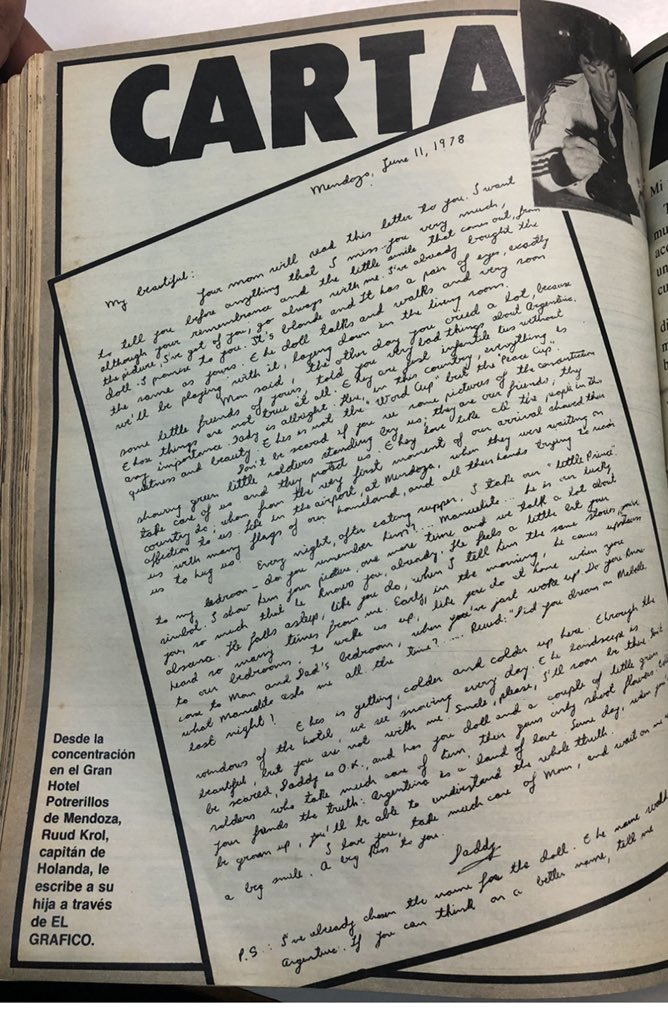 CARTA
Mendoza, June 11, 1978
My beautiful:
Your mom will read this letter to you. I want
to tell you before anything that I miss you very much,
although your remembrance and the little smile that comes out, from
the picture, I've got of you, go always with me. I've already bought the
doll I promise to you. It's blonde and It has a pair of eyes, exactly
the same as yours. Ehe doll talks and walks and very soon
we'll be playing with it, laying down in the living room.
Mom said, the other day you cried a lot, because
some little friends of yours, told you very bad things about Argentina.
Ehose things are not true at all. Ehey are just infantile lies without
any importance. Daddy is allright. Here, in this country, everything is
greatness and beauty. Ehes is not the "Word Cup" but the "Peace Cup".
Don't be scared if you see some pictures of the concentration
showing green little soldiers standing by us; they are our friends, they
take care of us and they protect us. Ehey love like all the people in this
country do, whom from the very first moment of our arrival showed their
affection to us. Like in the airport, at Mendoza, when they were waiting on
us with many flags of our homeland, and all their hands trying to reach
us to hug us!
Every night, after eating supper, I take our "little Prince"
to my bedroom - do you remember him?... Manuelito... he is our lucky
simbol. I show him your picture one more time and we talk a lot about
you, so much that he knows you, already. He feels a little bit your
absence. He falls asleep, like you do, when I tell him the same stories, you've
heard so many times from me. Early in the morning, he comes upstairs
to our bedrooms, to wake us up, like you do at home when you
come to Mom and Dad's bedroom, when you've just woke up. Do you know
what Manuelito asks me all the time? .... Ruud: "Did you dream on
last night!
Ehes is getting colder and colder up here. Ehrough the
windows of the hotel, we see snowing every day. Ehe landscape is
beautiful, but you are not with me! Smile, please, I'll soon be there. Don't
be scared, Daddy is O.K., and has you doll and a couple of little green
soldiers who take much care of him, their guns only shoot flowers.
your friends the truth: Argentina is a land of love. Some day, when you'll
be grown up, you'll be able to understand the whole thruth.
I love you, take much care of Mom, and wait on me
a big smile. A big kiss to you.
Daddy
P.S.: I've already chosen the name for the doll. Ehe name
Argentina. If you can think on a better name, tell me
Desde la
concentración
en el Gran
Hotel
Potrerillos
de Mendoza,
Ruud Krol,
capitán de
Holanda, le
escribe a su
hija a través
de EL
GRAFICO.
Mi